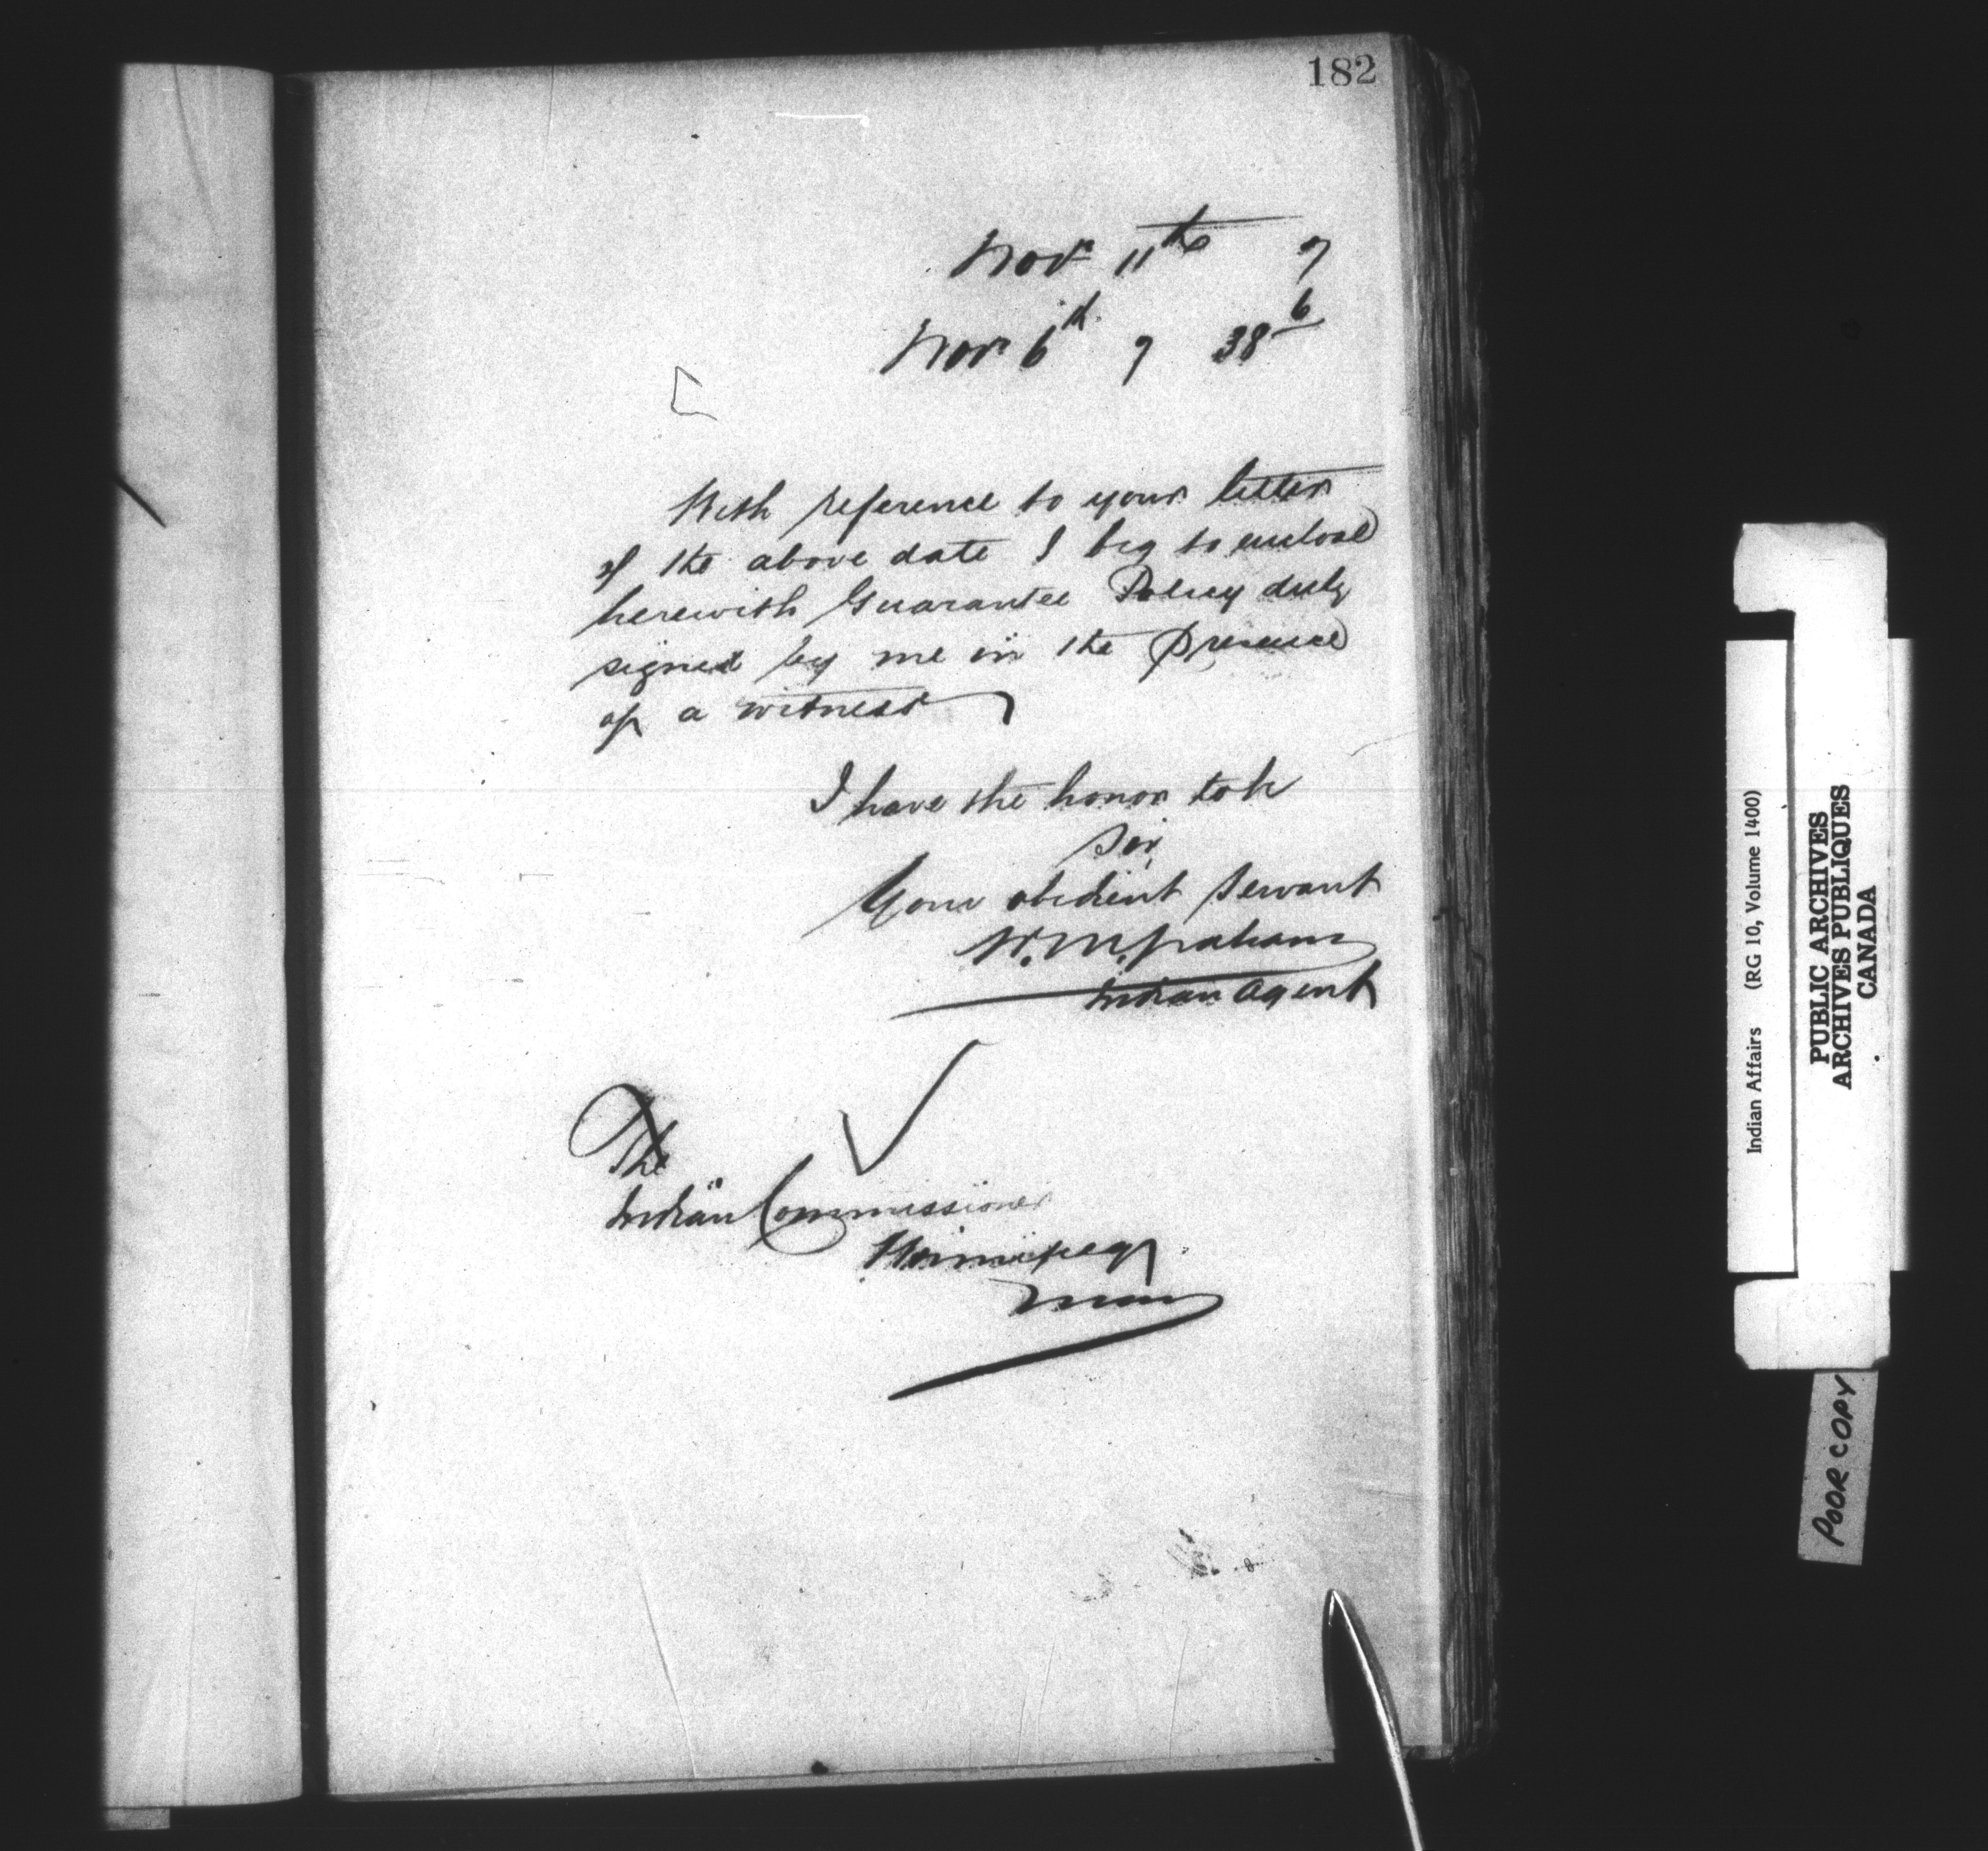 182
Novr 11th 7
Novr 6th 7 38 6
With reference to your letter
of the above date I beg to enclose
herewith Guarantee Policy duly
signed by me in the presence
of a witness
I have the honor to be
Sir,
Your obedient servant
W. M. Graham
Indian Agent
The
Indian Commissioner
Winnipeg
Man
Indian Affairs (RG 10, Volume 1400)
PUBLIC ARCHIVES
ARCHIVES PUBLIQUES
CANADA
POOR COPY